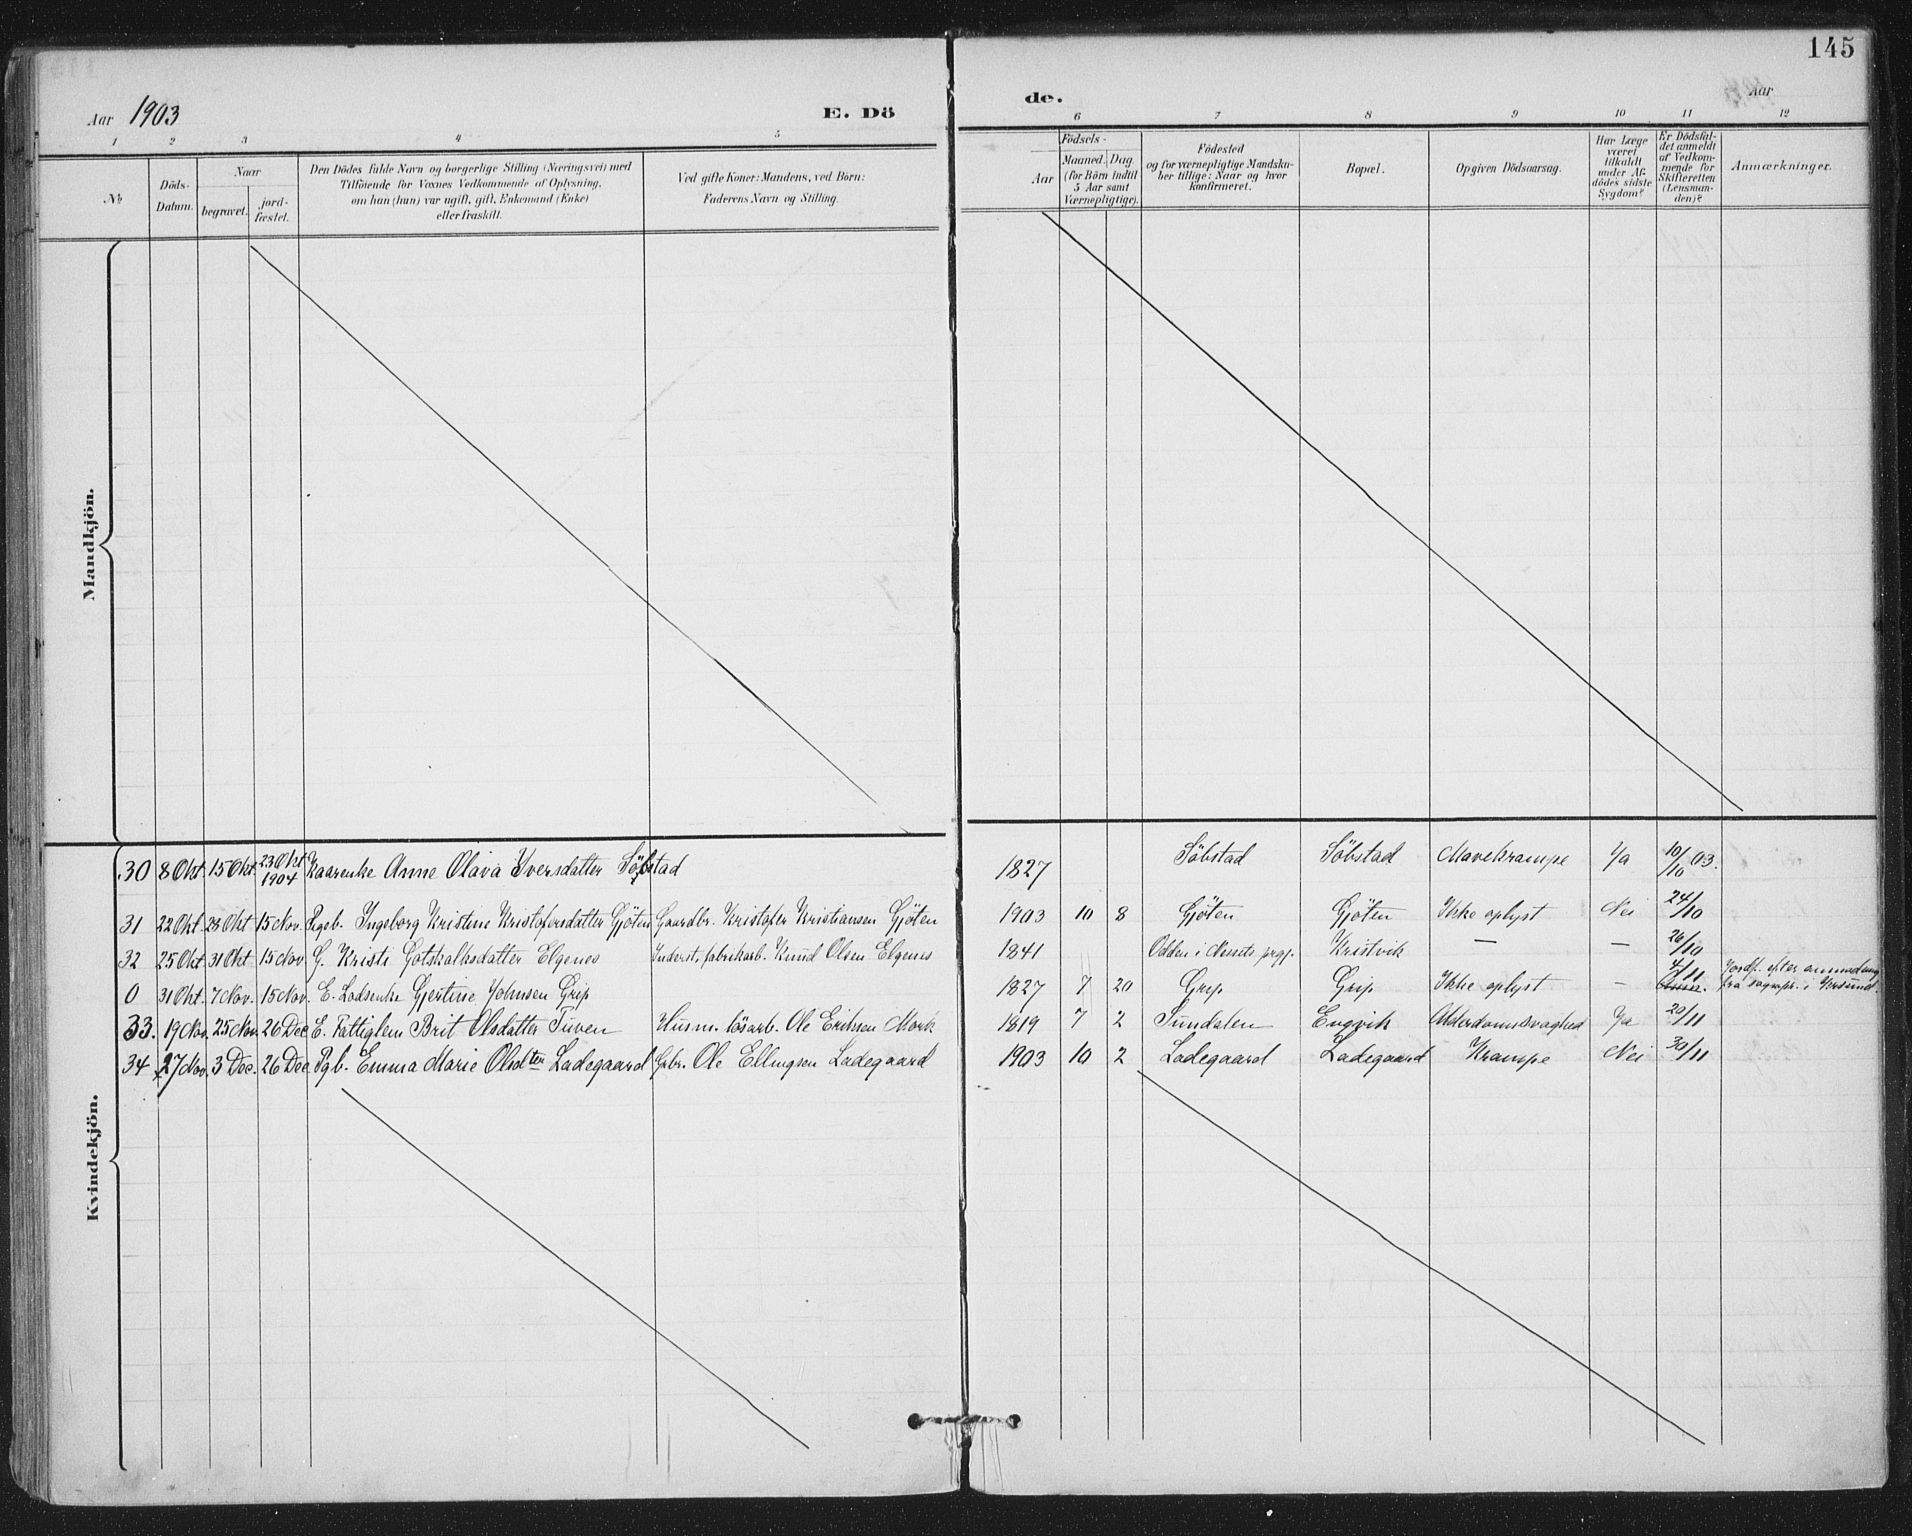 145
Aar 1903
E. Dö
de.
Aar
1 2 3 4 5
6 7 8 9 10 11 12
№
Döds-Datum.
Naar
begravet.
jord-fæstet.
Den Dödes fulde Navn og borgerlige Stilling (Næringsvei) med
Tilföiende for Voxnes Vedkommende af Oplysning,
om han (hun) var ugift, gift, Enkemand (Enke)
eller fraskilt.
Ved gifte Koner: Mandens, ved Börn:
Faderens Navn og Stilling.
Födsels-
Aar
Maaned. Dag.
(for Börn indtil
5 Aar samt
Værnepligtige).
Födested
og for værnepligtige Mandska-
ber tillige: Naar og hvor
konfirmeret.
Bopæl.
Opgiven Dödsaarsag.
Har Læge
været
tilkaldt
under Af-
dödes sidste
Sygdom?
Er Dödsfal-
det anmeldt
af Vedkom-
mende for
Skifteretten
(Lensman-
den)?
Anmærkninger.
Mandkjön.
Kvindekjön.
30 8 Okt. 15 Okt. 23 Okt 1904 Kaarenke Anne Olava Iversdatter Söbstad 1827 Söbstad Söbstad Mavekrampe Ja 10/10 03.
31 22 Okt. 28 Okt 15 Nov. Pigeb. Ingeborg Kristine Kristofersdatter Gjöten Gaardbr. Kristofer Kristiansen Gjöten 1903 10 8 Gjöten Gjöten Ikke oplyst Nei 24/10
32 25 Okt 31 Okt 15 Nov G. Kristi Gotskalksdatter Elgenes Inderst, fabrikarb. Knud Olsen Elgenes 1841 Odden i Nessets prgj. Kristvik — — 26/10
0 31 Okt. 7 Nov. 15 Nov. E. Lodsenke Gjertine Johnsen Grip 1827 7 20 Grip Grip Ikke oplyst — 4/11 Jordf. efter anmodning fra sognepr. i
33. 19 Nov. 25 Nov. 26 Dec E. Fattiglem Brit Olsdatter Tuven Husm. lösarb. Ole Eriksen Mork 1819 7 2 Sundalen Engvik Alderdomssvaghed Ja 20/11
34 27 Nov. 3 Dec. 26 Dec Pgb. Emma Marie Olsdtr Ladegaard Gbr. Ole Ellingsen Ladegaard 1903 10 2 Ladegaard Ladegaard Krampe Nei 30/11